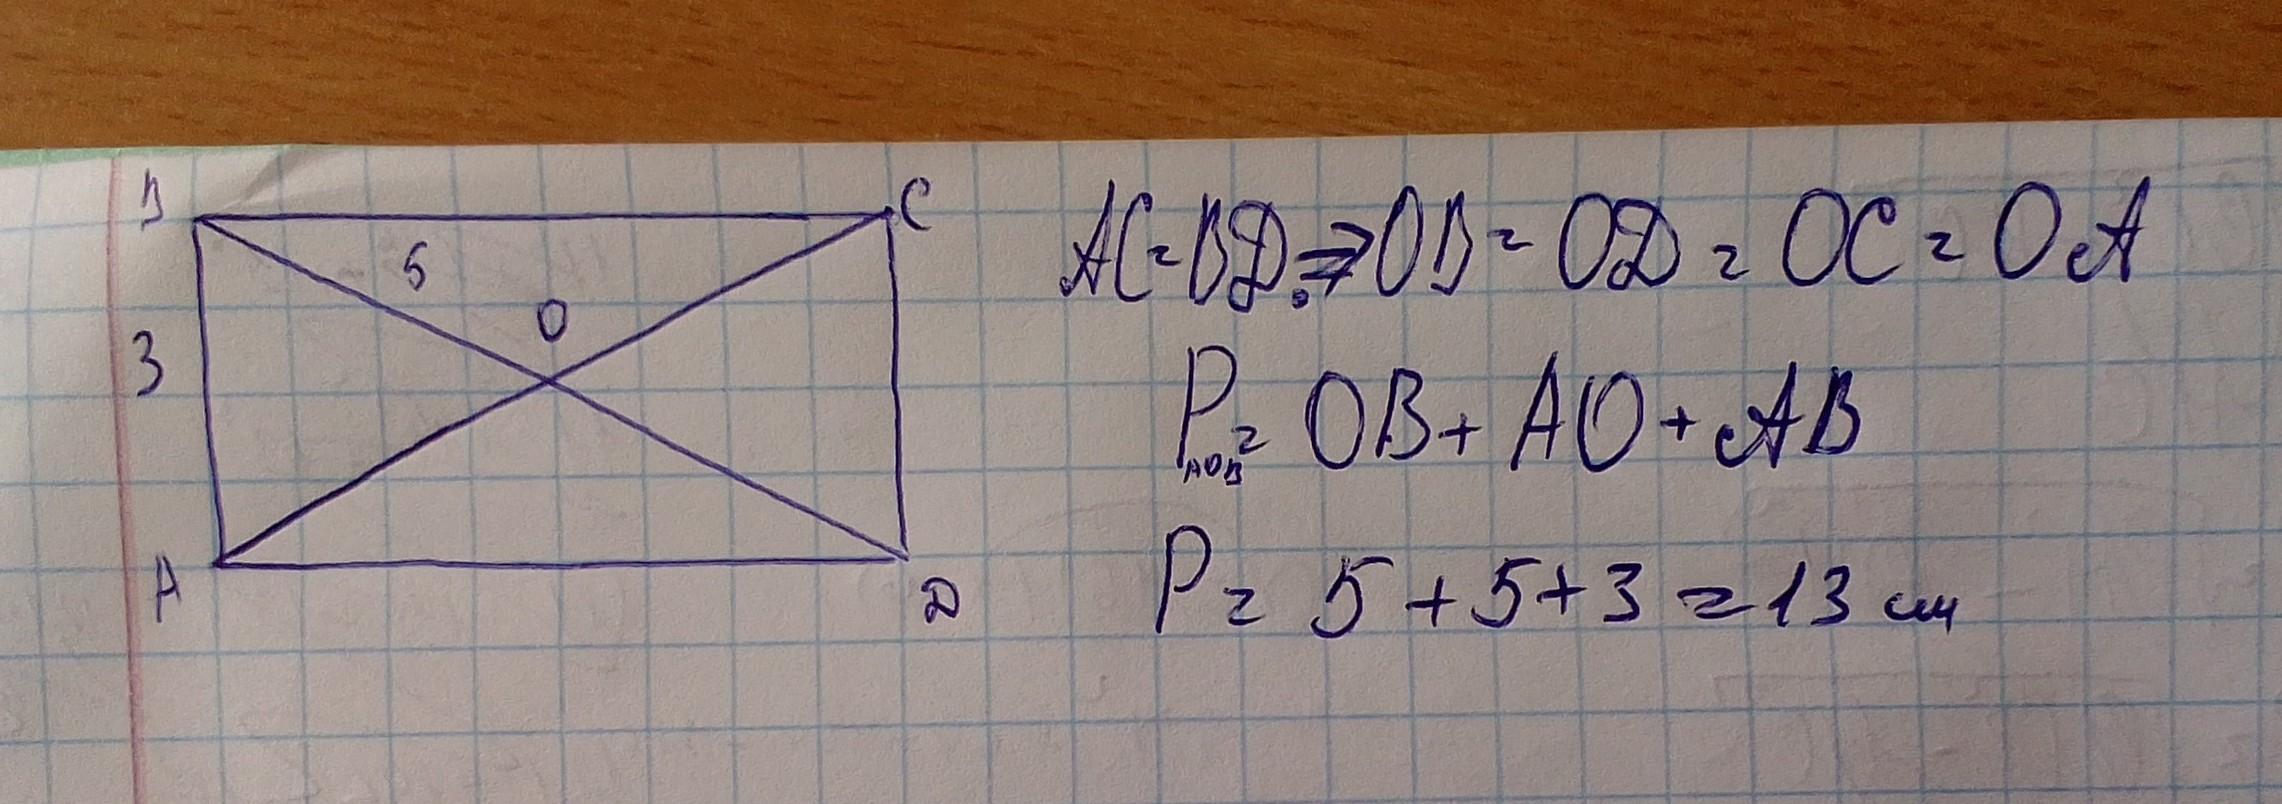 B
C
5
O
3
A
D
AC=BD. ⇒ OB = OD = OC = OA
P AOB = OB + AO + AB
P = 5 + 5 + 3 = 13 см